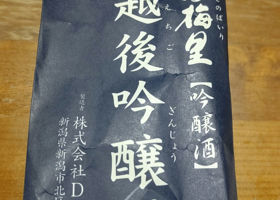 梅里【吟醸酒】
のばいり
越後吟醸
えちご
ぎんじょう
製造者
株式会社D
新潟県新潟市北